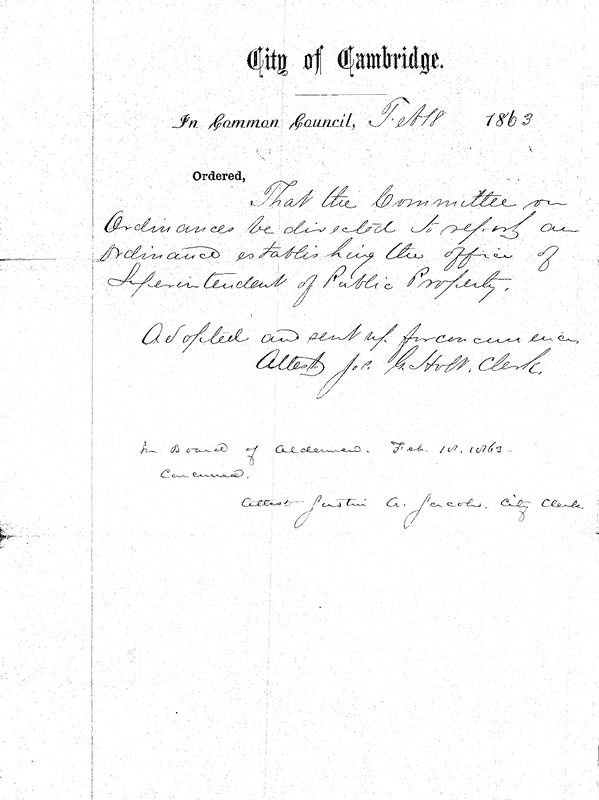 City of Cambridge.
In Common Council, Feb 18 1863
Ordered,
That the Committee on
Ordinances be directed to report an
Ordinance establishing the office of
Superintendent of Public Property.
Adopted and sent up for concurrence.
Attest Jos. G. Holt. Clerk.
In Board of Aldermen. Feb. 18. 1863.
Concurred.
Attest Justin A. Jacobs. City Clerk.